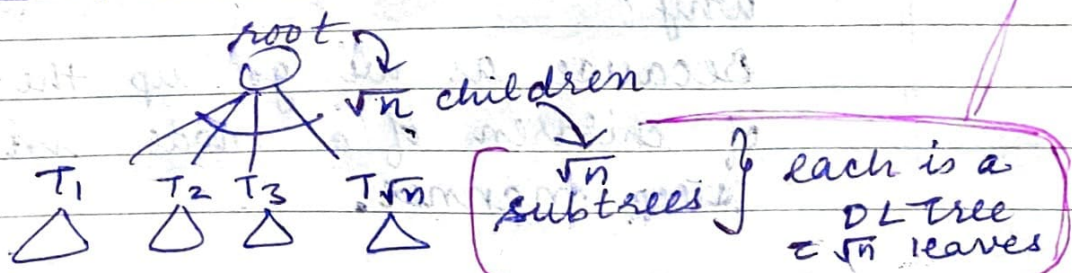 root
√n children
T1 T2 T3 T√n
√n
subtrees } each is a
DL Tree
= √n leaves